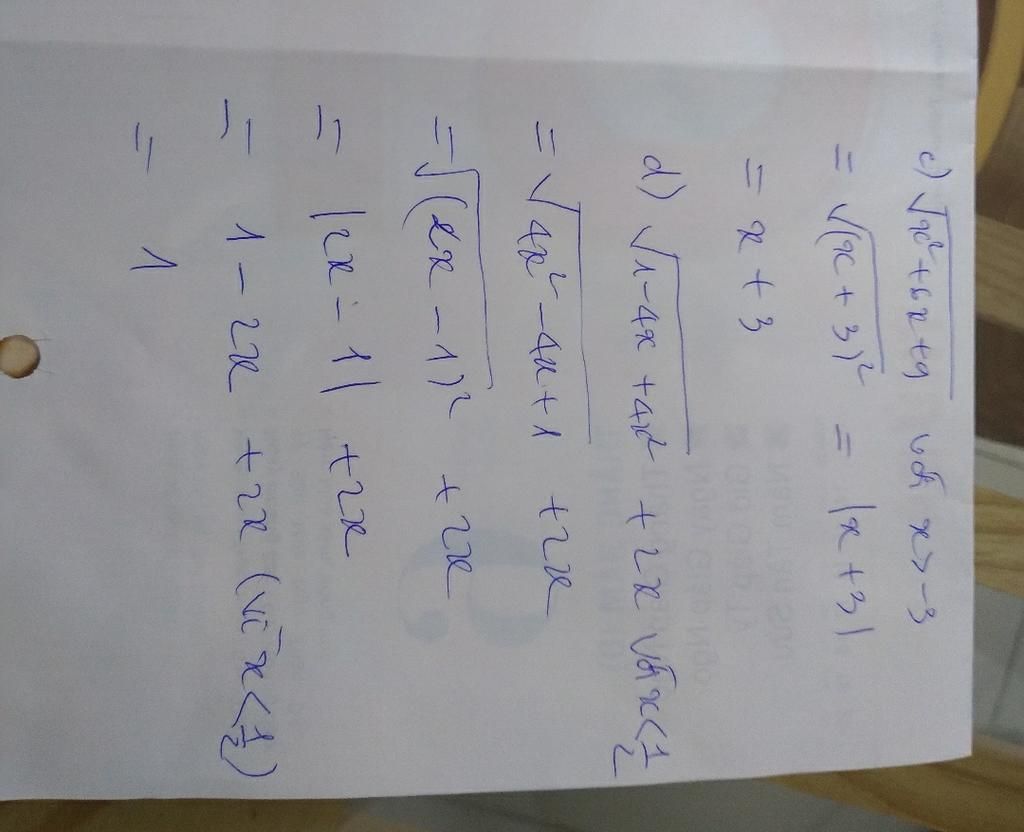 c) √x²+6x+9 với x>-3
= √(x+3)² = |x+3|
= x+3
d) √1-4x+4x² + 2x với x<1/2
= √4x²-4x+1 + 2x
= √(2x-1)² + 2x
= |2x-1| + 2x
= 1-2x + 2x (vì x<1/2)
= 1